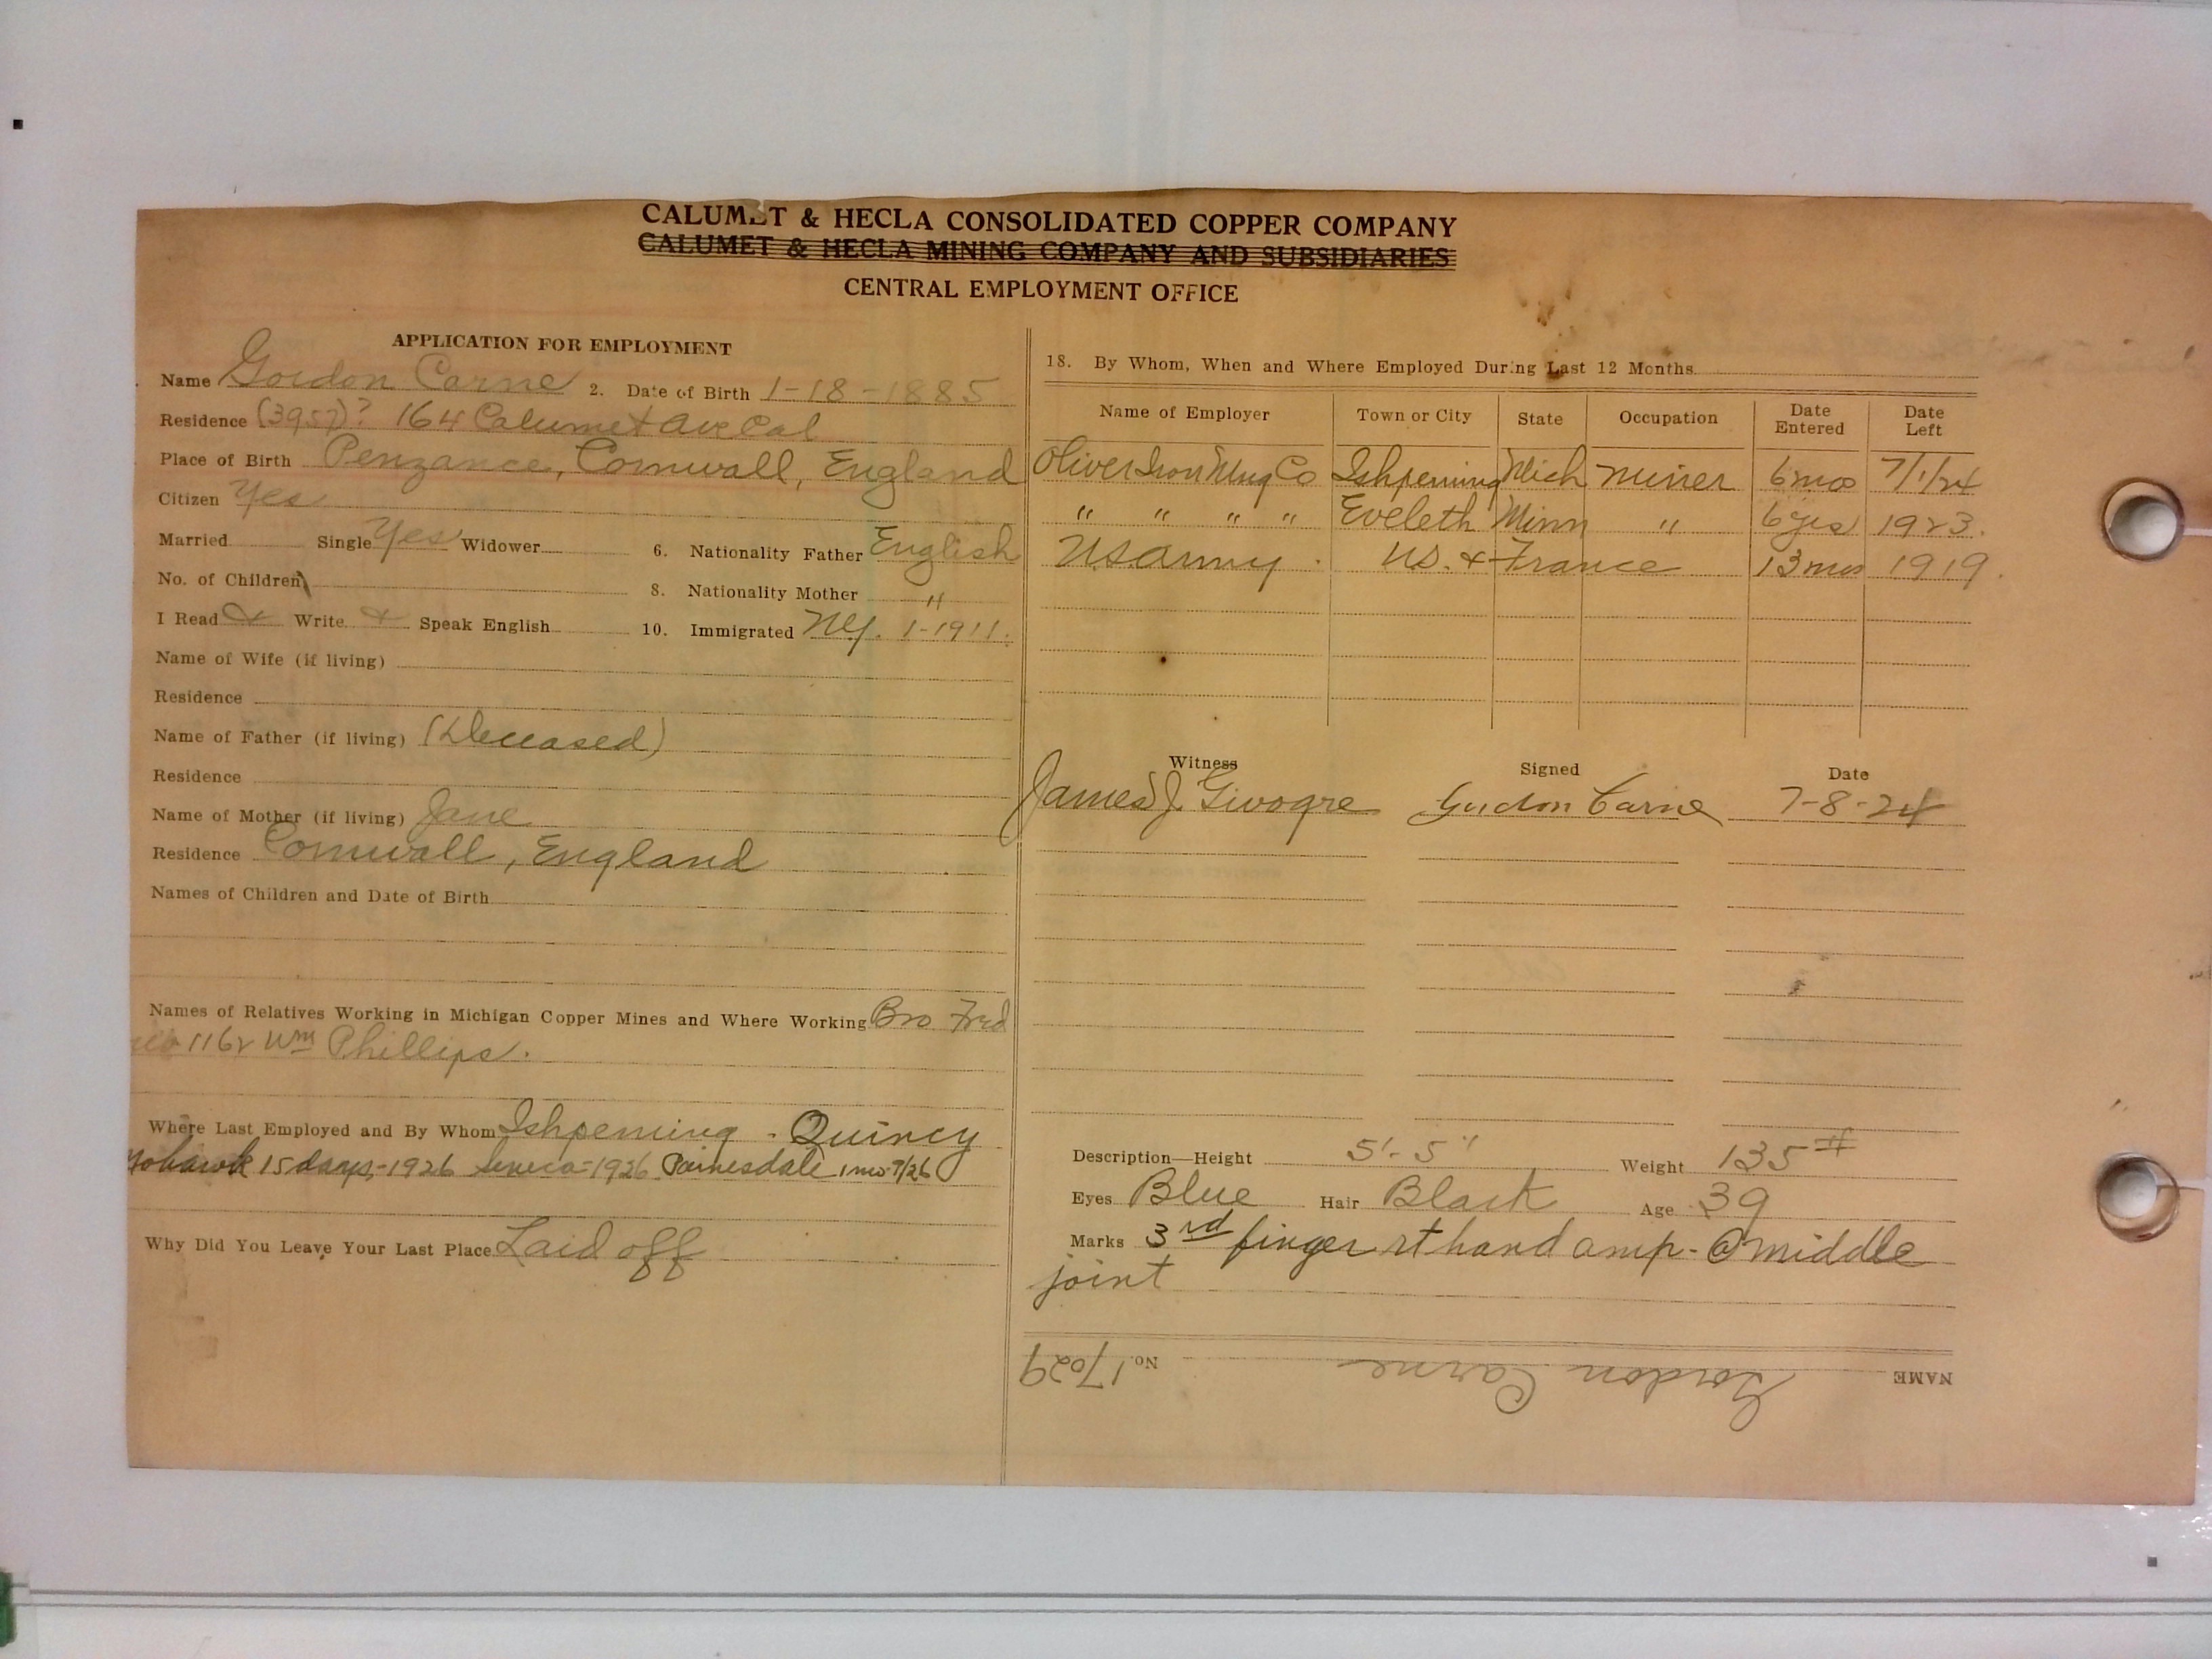 CALUMET & HECLA CONSOLIDATED COPPER COMPANY
CALUMET & HECLA MINING COMPANY AND SUBSIDIARIES
CENTRAL EMPLOYMENT OFFICE
APPLICATION FOR EMPLOYMENT
Name Gordon Carne 2. Date of Birth 1-18-1885
Residence (3957)? 164 Calumet Ave Cal
Place of Birth Penzance, Cornwall, England
Citizen Yes
Married Single Yes Widower 6. Nationality Father English
No. of Children 8. Nationality Mother "
I Read & Write & Speak English 10. Immigrated NY. 1-1911.
Name of Wife (if living)
Residence
Name of Father (if living) (Deceased)
Residence
Name of Mother (if living) Jane
Residence Cornwall, England
Names of Children and Date of Birth
Names of Relatives Working in Michigan Copper Mines and Where Working Bro Fred
1162 Wm Phillips.
Where Last Employed and By Whom Ishpeming - Quincy
Mohawk 15 days-1926 Seneca-1926 Painesdale 1 mo-9/26
Why Did You Leave Your Last Place Laid off
18. By Whom, When and Where Employed During Last 12 Months
Name of Employer Town or City State Occupation Date Entered Date Left
Oliver Iron Mng Co Ishpeming Mich Miner 6 mos 7/1/24
" " " " Eveleth Minn " 6 yrs 1923.
US Army. US. & France 13 mos 1919.
Witness Signed Date
James J. Gordon Carne 7-8-24
Description—Height 5'-5" Weight 135#
Eyes Blue Hair Black Age 39
Marks 3rd finger rt hand amp- @ middle
joint
NAME Gordon Carne No. 17029